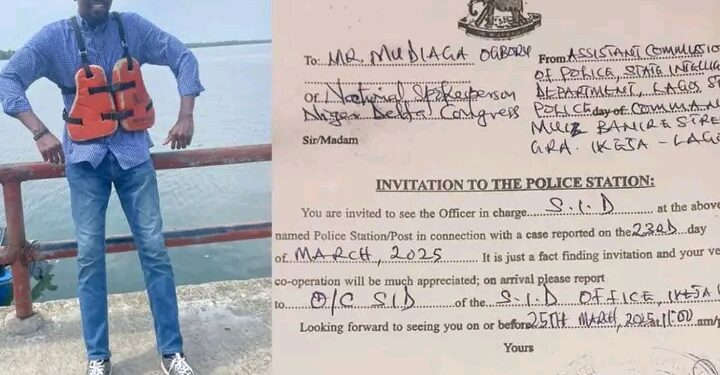 To: MR. MUDIAGA OGBORU
Of National Spokesperson
Niger Delta Congress
Sir/Madam
From ASSISTANT COMMISSIO
OF POLICE, STATE INTELLIG
DEPARTMENT, LAGOS ST
POLICE day of COMMAN
BANIRE STRE
GRA. IKEJA - LAGO
INVITATION TO THE POLICE STATION:
You are invited to see the Officer in charge S.I.D at the above
named Police Station/Post in connection with a case reported on the 23RD day
of MARCH, 2025 It is just a fact finding invitation and your ve
co-operation will be much appreciated; on arrival please report
to O/C SID of the S.I.D OFFICE, IKEJA
Looking forward to seeing you on or before 25TH MARCH, 2025 am/p
Yours